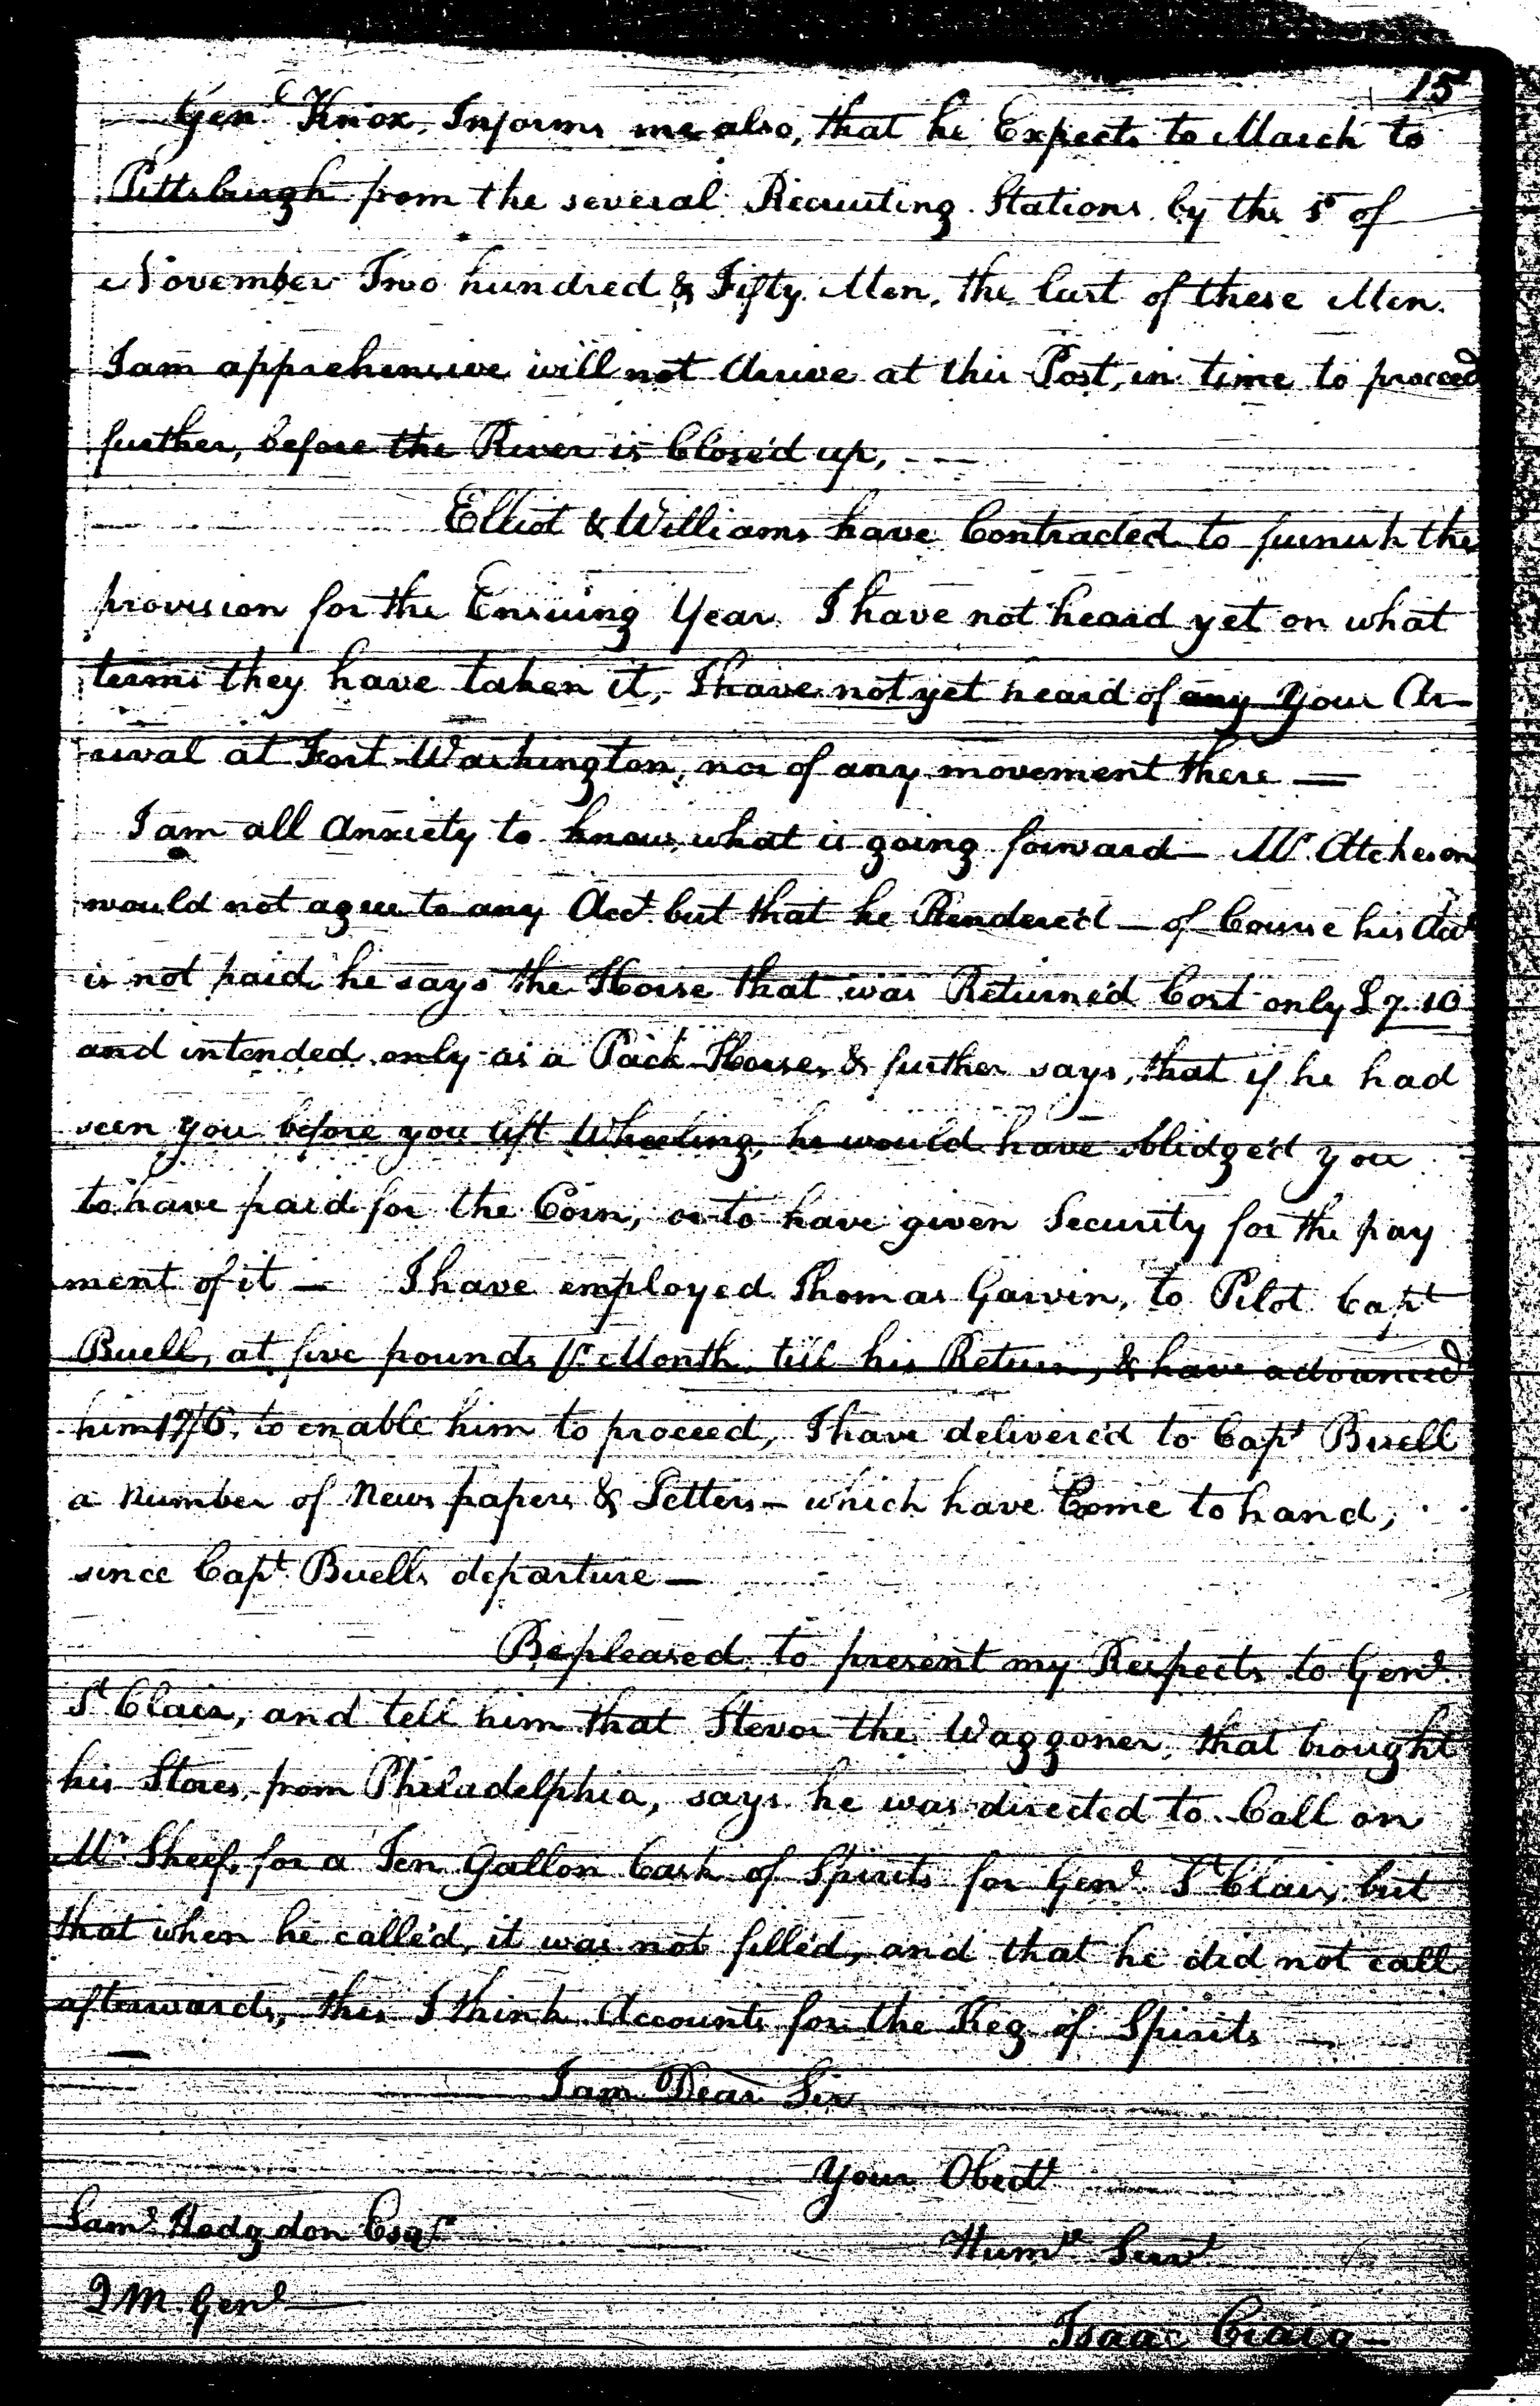 15
Genl Knox, Informs me also, that he Expects to March to
Pittsburgh from the several Recruiting Stations by the 1st of
November Two hundred & Fifty Men, the last of these Men.
I am apprehensive will not Arrive at this Post, in time to proceed
further, before the River is Closed up, - -
Elliot & Williams have Contracted to furnish the
provision for the Ensuing Year I have not heard yet on what
terms they have taken it, I have not yet heard of any Your Ar-
rival at Fort Washington, nor of any movement there —
I am all Anxiety to know what is going forward — Mr. Atcheson
would not agree to any Acct. but that he Render'd — of Course his Acct
is not paid he says the Horse that was Return'd Cost only £7..10
and intended only as a Pack-Horse, & further says, that if he had
seen you before you left Wheeling, he would have oblidge'd you
to have paid for the Corn, or to have given Security for the pay
ment of it — I have employed Thomas Garvin, to Pilot Capt
Buell, at five pounds Pr Month till his Return, & have advanced
him 17/6, to enable him to proceed, I have deliver'd to Capt Buell
a Number of News papers & Letters — which have Come to hand,
since Capt. Buells departure —
Be pleased to present my Respects to Genl
St Clair, and tell him that the Waggoner, that brought
his Stores, from Philadelphia, says he was directed to Call on
Mr Sheef, for a Ten Gallon Cask of Spirits for Genl St Clair, but
that when he call'd, it was not fill'd, and that he did not call
afterwards, this I think Accounts for the Keg of Spirits —
I am Dear Sir
Your Obedt
Saml Hodgdon Esqr
Humle Servt
Q M Genl —
Isaac Craig —